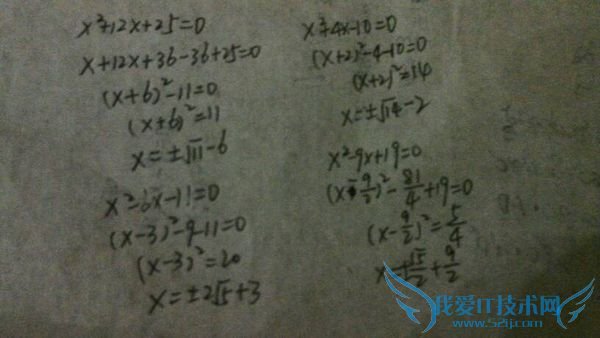 x²+12x+25=0
x+12x+36-36+25=0
(x+6)²-11=0
(x+6)²=11
x=±√11-6
x²-6x-11=0
(x-3)²-9-11=0
(x-3)²=20
x=±2√5+3
x²+4x-10=0
(x+2)²-4-10=0
(x+2)²=14
x=±√14-2
x²-9x+19=0
(x-9/2)²-81/4+19=0
(x-9/2)²=5/4
x=±√5/2+9/2
我爱IT技术网
www.52ij.com